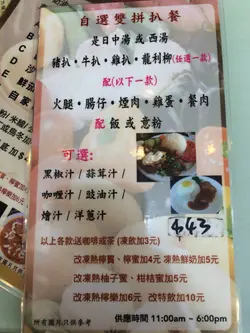 自選雙拼扒餐
是日中湯 或 西湯
豬扒・牛扒・雞扒・龍利柳(任選一款)
配(以下一款)
火腿・腸仔・煙肉・雞蛋・餐肉
配 飯 或 意粉
可選：
黑椒汁 / 蒜茸汁 /
咖喱汁 / 豉油汁 /
燴汁 / 洋蔥汁
$43
以上各款送咖啡或茶 (凍飲加3元)
改凍熱檸賓、檸蜜加4元 凍熱鮮奶加5元
改凍熱柚子蜜、柑桔蜜加5元
改凍熱檸樂加6元 改特飲加10元
所有圖片只供參考
供應時間 11:00am ~ 6:00pm
A
B
C
D
E